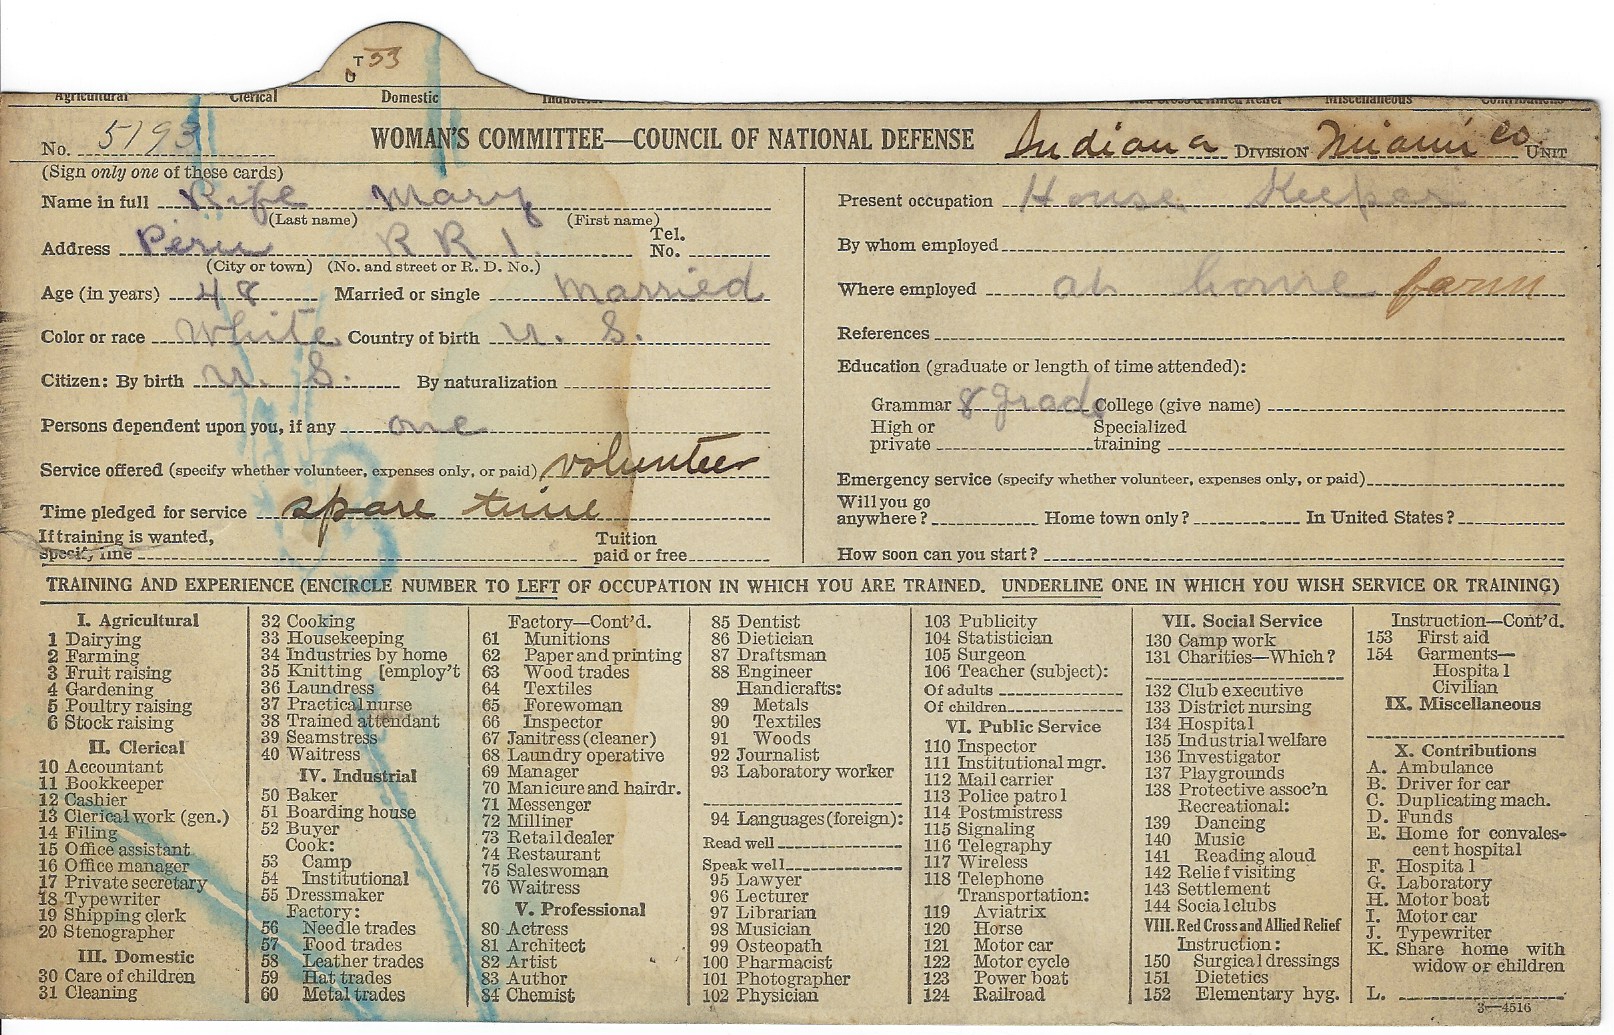 T 33
U
Agricultural Clerical Domestic Miscellaneous Contributions
No. 5193 WOMAN'S COMMITTEE—COUNCIL OF NATIONAL DEFENSE Indiana DIVISION Miami co. UNIT
(Sign only one of these cards)
Name in full Rife Mary
(Last name) (First name)
Address Peru R R 1. Tel. No.
(City or town) (No. and street or R. D. No.)
Age (in years) 48 Married or single Married
Color or race White Country of birth U. S.
Citizen: By birth U. S. By naturalization
Persons dependent upon you, if any one
Service offered (specify whether volunteer, expenses only, or paid) volunteer
Time pledged for service spare time
If training is wanted, specify line Tuition paid or free
Present occupation House Keeper
By whom employed
Where employed at home farm
References
Education (graduate or length of time attended):
Grammar 8 grade College (give name)
High or private Specialized training
Emergency service (specify whether volunteer, expenses only, or paid)
Will you go anywhere? Home town only? In United States?
How soon can you start?
TRAINING AND EXPERIENCE (ENCIRCLE NUMBER TO LEFT OF OCCUPATION IN WHICH YOU ARE TRAINED. UNDERLINE ONE IN WHICH YOU WISH SERVICE OR TRAINING)
I. Agricultural
1 Dairying
2 Farming
3 Fruit raising
4 Gardening
5 Poultry raising
6 Stock raising
II. Clerical
10 Accountant
11 Bookkeeper
12 Cashier
13 Clerical work (gen.)
14 Filing
15 Office assistant
16 Office manager
17 Private secretary
18 Typewriter
19 Shipping clerk
20 Stenographer
III. Domestic
30 Care of children
31 Cleaning
32 Cooking
33 Housekeeping
34 Industries by home
35 Knitting [employ't
36 Laundress
37 Practical nurse
38 Trained attendant
39 Seamstress
40 Waitress
IV. Industrial
50 Baker
51 Boarding house
52 Buyer
Cook:
53 Camp
54 Institutional
55 Dressmaker
Factory:
56 Needle trades
57 Food trades
58 Leather trades
59 Hat trades
60 Metal trades
Factory—Cont'd.
61 Munitions
62 Paper and printing
63 Wood trades
64 Textiles
65 Forewoman
66 Inspector
67 Janitress (cleaner)
68 Laundry operative
69 Manager
70 Manicure and hairdr.
71 Messenger
72 Milliner
73 Retail dealer
74 Restaurant
75 Saleswoman
76 Waitress
V. Professional
80 Actress
81 Architect
82 Artist
83 Author
84 Chemist
85 Dentist
86 Dietician
87 Draftsman
88 Engineer
Handicrafts:
89 Metals
90 Textiles
91 Woods
92 Journalist
93 Laboratory worker
94 Languages (foreign):
Read well
Speak well
95 Lawyer
96 Lecturer
97 Librarian
98 Musician
99 Osteopath
100 Pharmacist
101 Photographer
102 Physician
103 Publicity
104 Statistician
105 Surgeon
106 Teacher (subject):
Of adults
Of children
VI. Public Service
110 Inspector
111 Institutional mgr.
112 Mail carrier
113 Police patrol
114 Postmistress
115 Signaling
116 Telegraphy
117 Wireless
118 Telephone
Transportation:
119 Aviatrix
120 Horse
121 Motor car
122 Motor cycle
123 Power boat
124 Railroad
VII. Social Service
130 Camp work
131 Charities—Which?
132 Club executive
133 District nursing
134 Hospital
135 Industrial welfare
136 Investigator
137 Playgrounds
138 Protective assoc'n
Recreational:
139 Dancing
140 Music
141 Reading aloud
142 Relief visiting
143 Settlement
144 Social clubs
VIII. Red Cross and Allied Relief
Instruction:
150 Surgical dressings
151 Dietetics
152 Elementary hyg.
Instruction—Cont'd.
153 First aid
154 Garments—
Hospital
Civilian
IX. Miscellaneous
X. Contributions
A. Ambulance
B. Driver for car
C. Duplicating mach.
D. Funds
E. Home for convales-
cent hospital
F. Hospital
G. Laboratory
H. Motor boat
I. Motor car
J. Typewriter
K. Share home with
widow or children
L.
3—4516